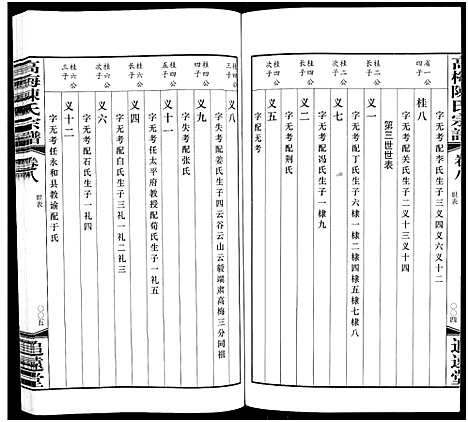 高梅陳氏宗譜
卷八
世表
〇〇四
追遠堂
省一公
四子
字无考配李氏生子四义六义十二
桂八
字无考配关氏生子二义十三义十四
第三世世表
桂二公
长子
义一
字无考配丁氏生子六一棣四一棣五一棣七一棣八
桂二公
次子
义二
字无考配冯氏生子一棣九
桂二公
三子
义三
字无考配荆氏
桂四公
长子
义五
字配无考
桂四公
三子
义八
字失考配姜氏生子四云谷云山云毅端肃高梅三分同祖
桂四公
四子
义九
字失考配张氏
桂四公
五子
义十一
字无考任太平府教授配荀氏生子一礼四
桂六公
长子
义四
字无考配白氏生子三礼一礼二礼三
桂六公
次子
义六
字无考配石氏生子一礼四
桂六公
三子
义十二
字无考任永和县教谕配于氏
高梅陳氏宗譜
卷八
世表
〇〇五
追遠堂